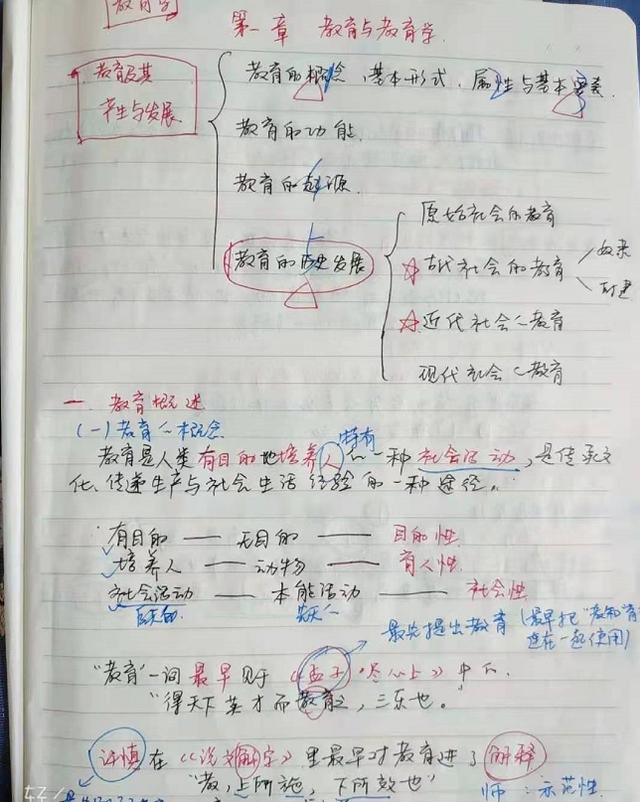 教育学
第一章 教育与教育学.
教育及其
产生与发展
教育的概念、基本形式、属性与基本要素.
教育的功能.
教育的起源.
教育的历史发展
原始社会的教育
古代社会的教育
奴隶
封建
近代社会〜教育
现代社会〜教育
一. 教育概述
(一)教育〜概念
教育是人类有目的地培养人〜一种社会活动,是传承文
特有
化、传递生产与社会生活经验的一种途径。
有目的 — 无目的 — 目的性.
培养人 — 动物 — 育人性.
社会活动 — 本能活动 — 社会性
后天的
先天〜
最先提出教育(最早把"教和育
连在一起使用)
"教育"一词最早见于《孟子·尽心上》中
"得天下英才而教育之,三乐也。"
许慎在《说文解字》里最早对教育进了解释
"教,上所施,下所效也"
师:示范性.